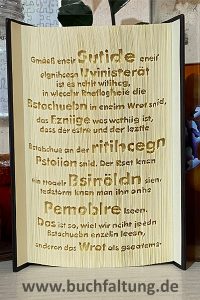 Gmäeß eneir Sutide eneir
elgnihcesn Uvinisterät
ist es nchit witihcg,
in wlecehr Rneflogheite die
Bstachuebn in eneim Wrot snid,
das Ezniige was wethiig ist,
dass der estre und der leztte
Bstabchue an der ritihcegn
Pstoiion snid. Der Rset knan
ein ttoaelr Bsinöldn sien,
tedztorm knan man ihn onhe
Pemoblre lseen.
Das ist so, wiel wir nciht jeedn
Bstachuebn enzelin leesn,
snderon das Wrot als gseatems.
www.buchfaltung.de